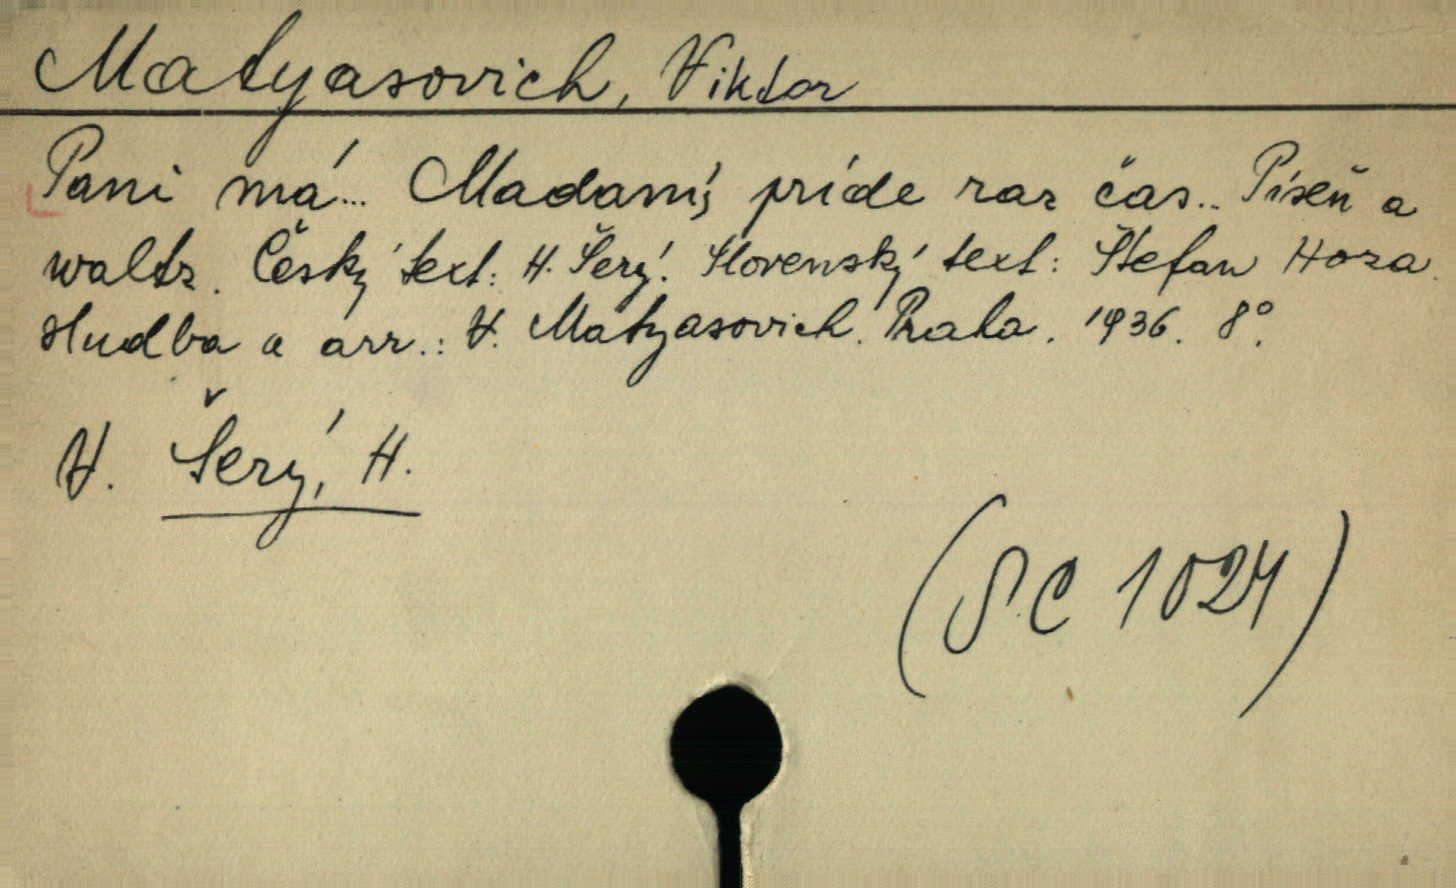 Matyasovich, Viktor
Pani má... Madam, príde raz čas.. Píseň a
waltz. Český text: H. Šerý. Slovenský text: Štefan Hoza.
Hudba a arr.: V. Matyasovich. Praha. 1936. 8°.
V. Šerý, H.
(SC 1024)